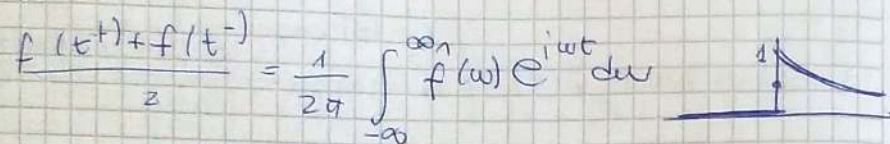 (f(t⁺)+f(t⁻))/2 = 1/2π ∫_{-∞}^{∞} f̂(ω) e^{iωt} dω
1